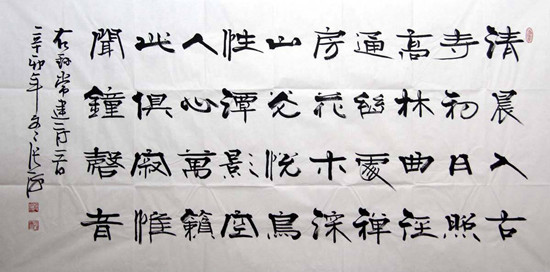 清晨入古
寺初日照
高林曲徑
通幽處禪
房花木深
山光悅鳥
性潭影空
人心萬籟
此俱寂惟
聞鐘磬音
右録常建诗一首
辛卯年